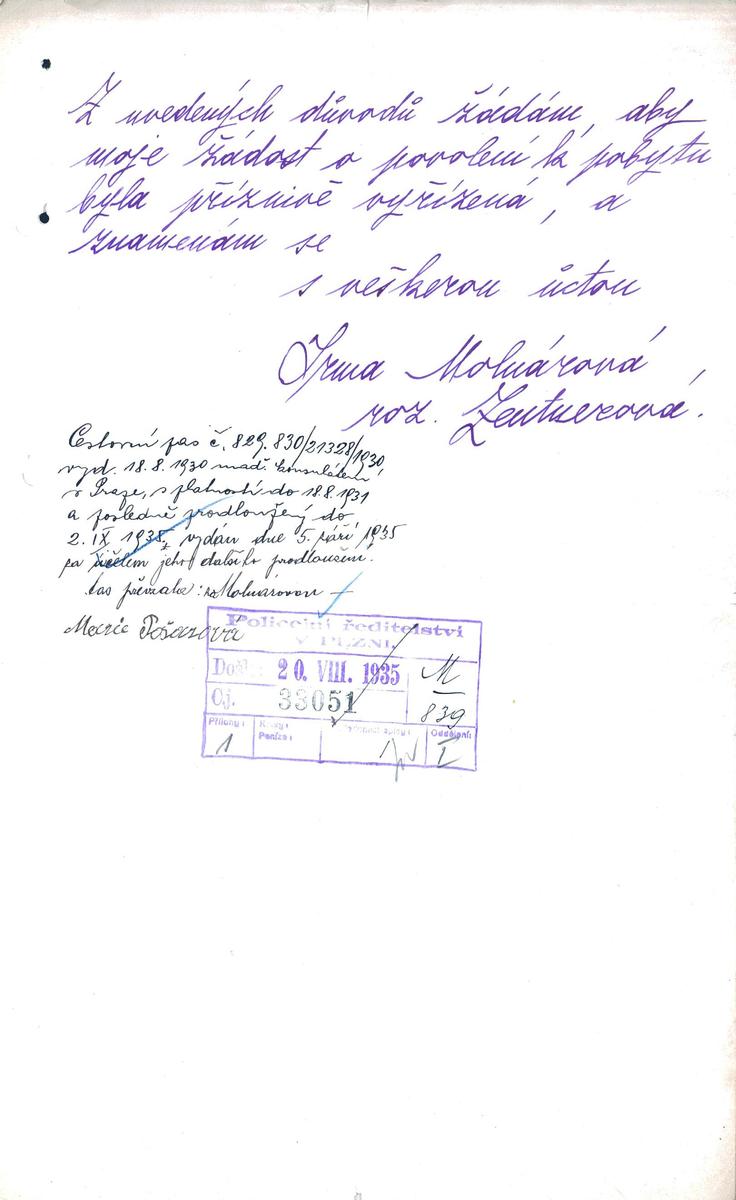 Z uvedených důvodů žádám, aby
moje žádost o povolení k pobytu
byla příznivě vyřízená, a
znamenám se
s veškerou úctou
Irma Molnárová,
roz. Zentnerová.
Cestovní pas č. 829.830/21328/1930
vyd. 18.8.1930 maď. konsulátem
v Praze, s platností do 18.8.1931
a posledně prodloužený do
2. IX 1935, vydán dne 5. září 1935
za účelem jeho dalšího prodloužení.
Pas převzala: za Molnárovou —
Marie
Policejní ředitelství
V PLZNI.
Došlo: 20. VIII. 1935
M
839
Čj. 33051
Přílohy: 1
Kolky:
Peníze:
Oddělení: I